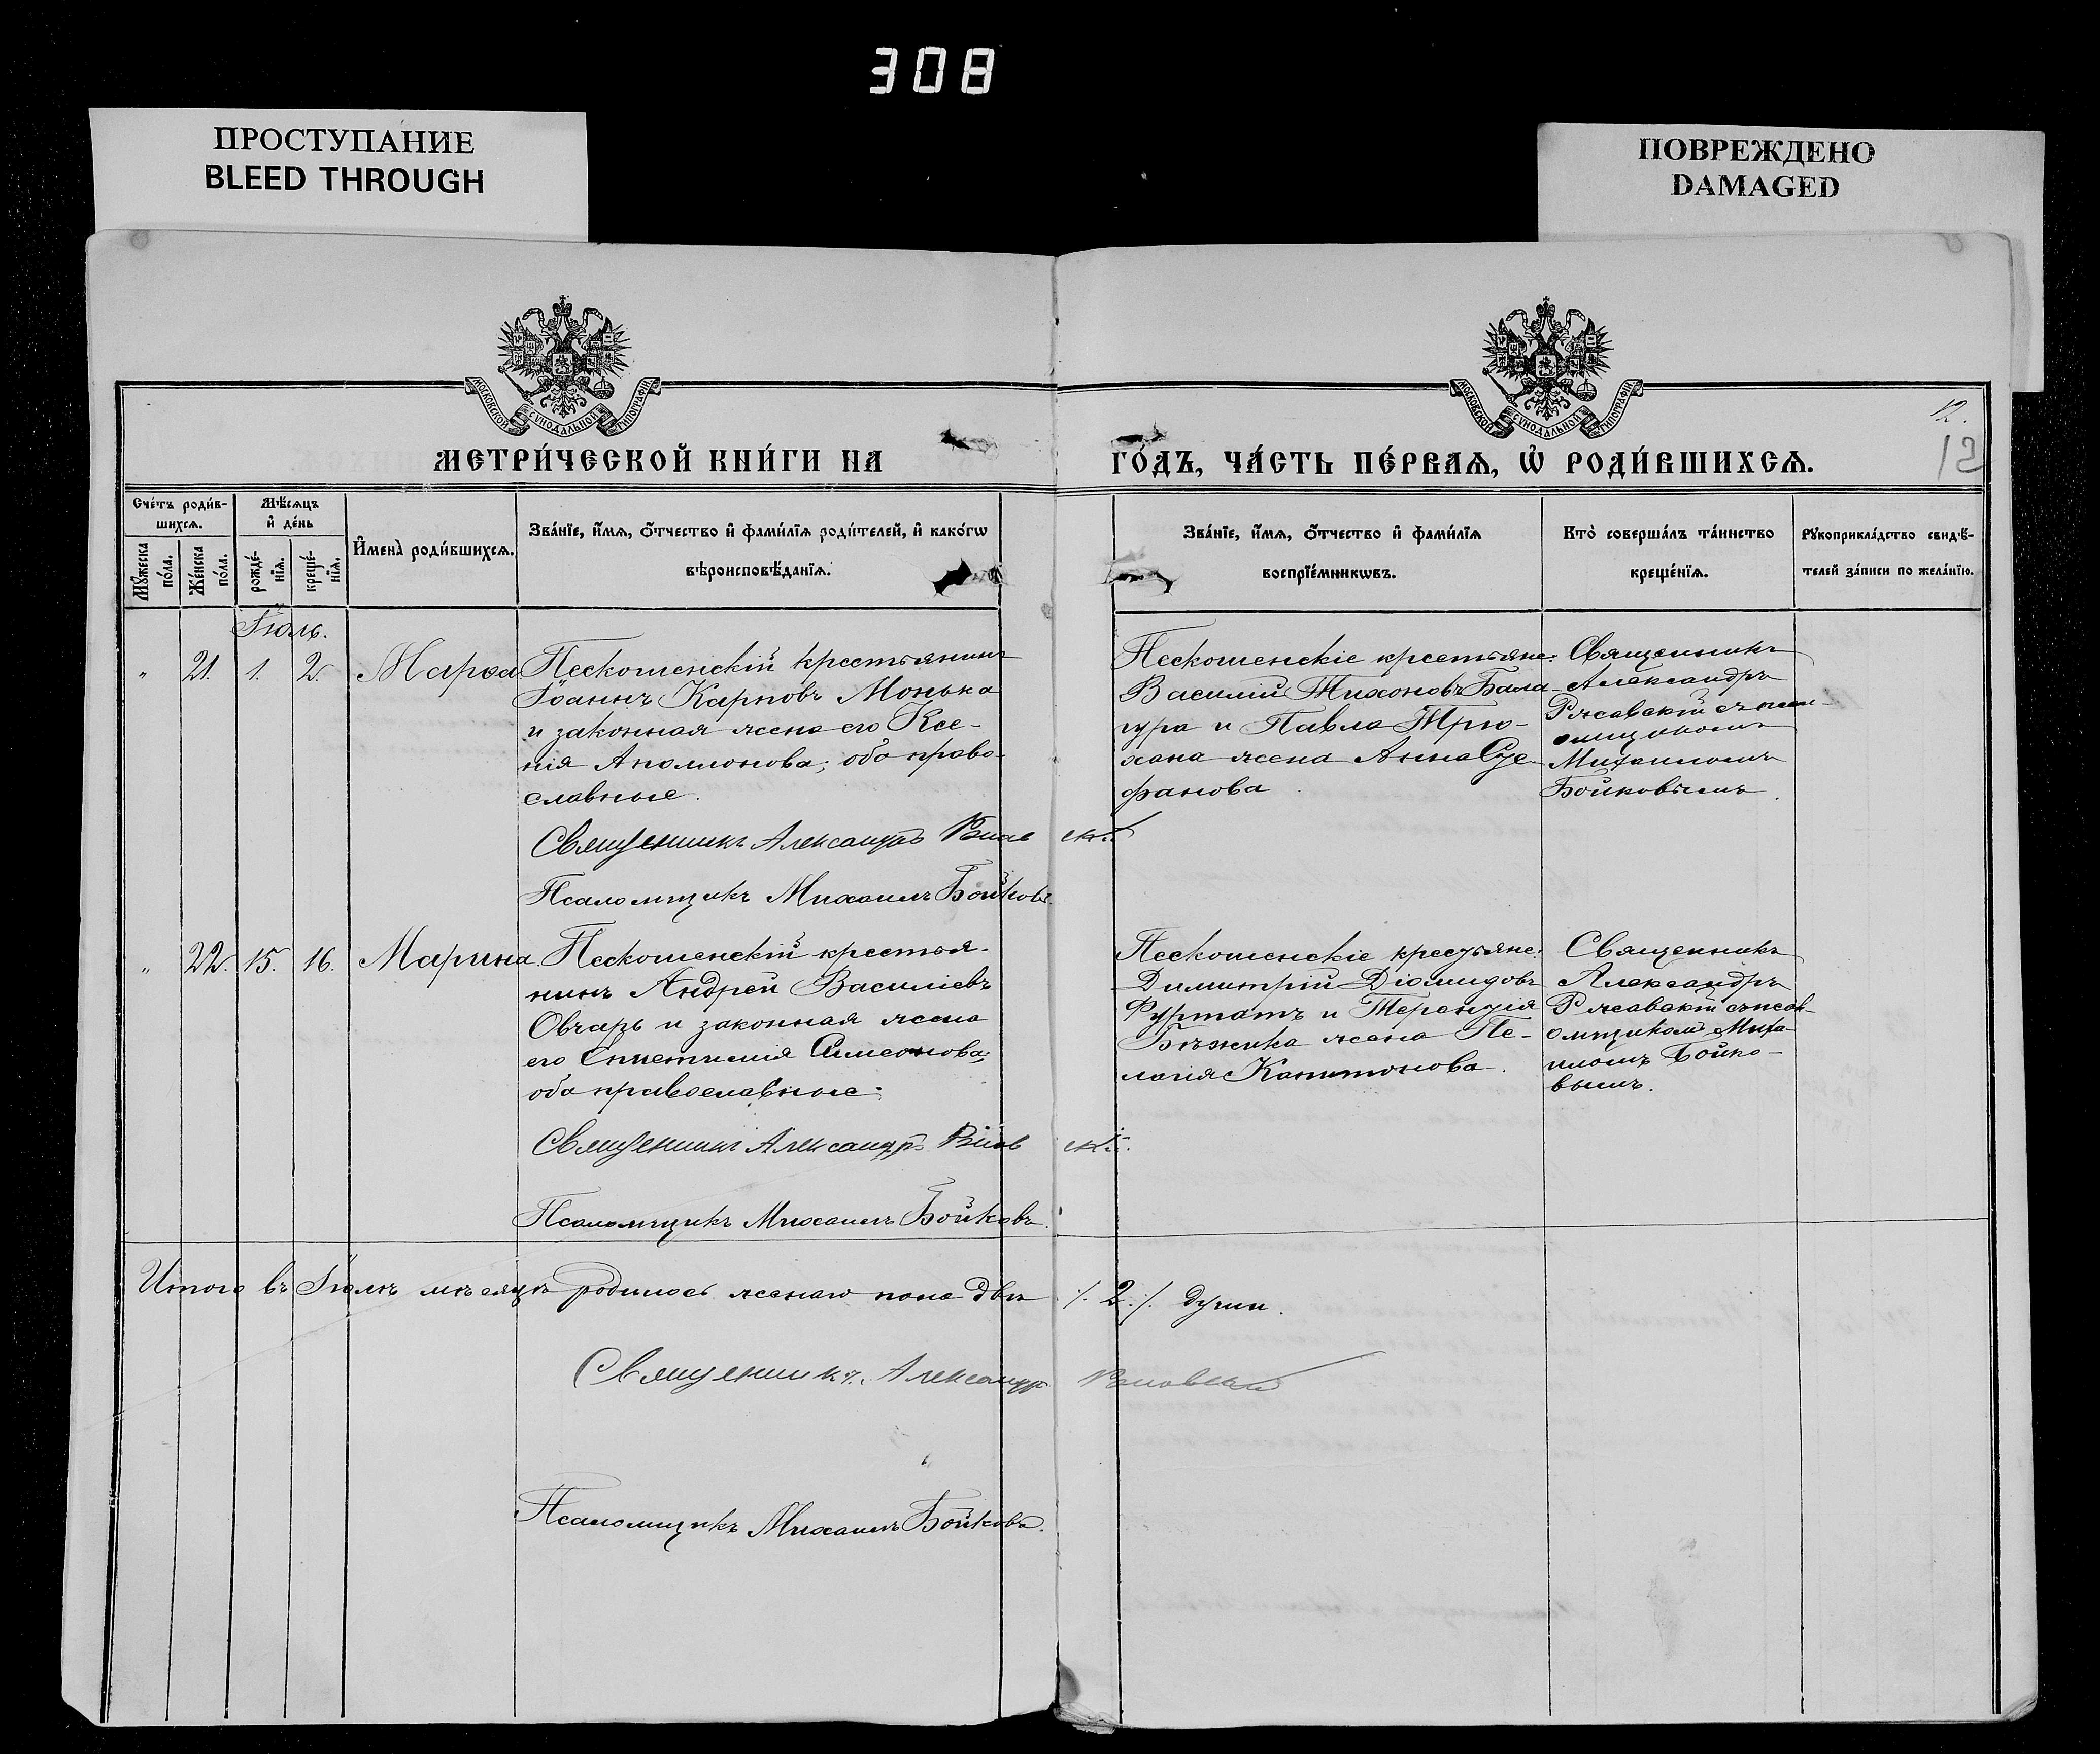 308
ПРОСТУПАНИЕ
BLEED THROUGH
ПОВРЕЖДЕНО
DAMAGED
МОСКОВСКОЙ СУНОДАЛЬНОЙ ТИПОГРАФІИ
МОСКОВСКОЙ СУНОДАЛЬНОЙ ТИПОГРАФІИ
12.
12
МЕТРИ́ЧЕСКОЙ КНИ́ГИ НА
ГО́ДЪ, ЧА́СТЬ ПЕ́РВАЯ, Ѡ҆ РОДИ́ВШИХСѦ.
Сче́тъ роди́в-
шихсѧ.
Мꙋ́жеска по́ла.
Же́нска по́ла.
Мѣ́сѧцъ
и҆ де́нь
рожде́-нїѧ.
креще́-нїѧ.
И҆мена̀ роди́вшихсѧ.
Зва́нїе, и҆́мѧ, ѻ҆́тчество и҆ фами́лїѧ роди́телей, и҆ како́гѡ
вѣроисповѣ́данїѧ.
Зва́нїе, и҆́мѧ, ѻ҆́тчество и҆ фами́лїѧ
воспрїе́мникѡвъ.
Кто̀ соверша́лъ та́инство
креще́нїѧ.
Рꙋкоприкла́дство свидѣ́-
телей за́писи по жела́нїю.
Іюль.
„ 21. 1. 2. Марѳа
Пескошенскій крестьянинъ
Іоаннъ Карповъ Монька
и законная жена его Ксе-
нія Аполлонова; оба право-
славные.
Священникъ Александръ Ржавскій
Псаломщикъ Михаилъ Бойковъ.
Пескошенскіе крестьяне:
Василій Тихоновъ Бала-
гура и Павла Трю-
хана жена Анна
фанова
Священникъ
Александръ
Ржавскій съ псал-
омщикомъ
Михаиломъ
Бойковымъ.
„ 22. 15. 16. Марина
Пескошенскій крестья-
нинъ Андрей Василіевъ
Овчаръ и законная жена
его Епистимія Симеонова;
оба православные.
Священникъ Александръ Ржавскій.
Псаломщикъ Михаилъ Бойковъ.
Пескошенскіе крестьяне:
Димитрій Діомидовъ
Фуртатъ и Терентія
жена Пе-
лагія Капитонова.
Священникъ
Александръ
Ржавскій съ псал-
омщикомъ Миха-
иломъ Бойко-
вымъ.
Итого въ Іюлѣ мѣсяцѣ родилось женаго пола двѣ /. 2 ./. души.
Священникъ Александръ Ржавскій
Псаломщикъ Михаилъ Бойковъ.